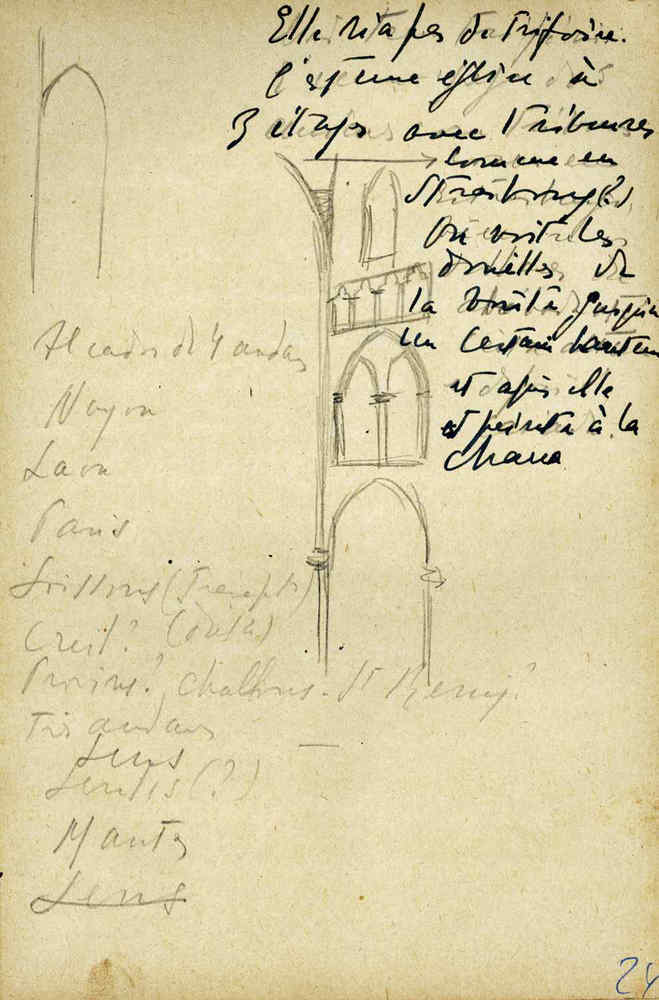 Elle n'a pas de Triforium.
C'est une église à
3 étages avec Tribunes
comme en
Strasbourg(?)
On voit les
douelles de
la voûte jusqu'à
un certain hauteur
et
et peinte à la
chaux
Alzados de 4 andares
Noyon
Laon
Paris
Soissons (Transept)
Creil?
Provins? Challons. St Remy?
Tres andares
Sens
Senlis (?)
Mantes
Sens
24